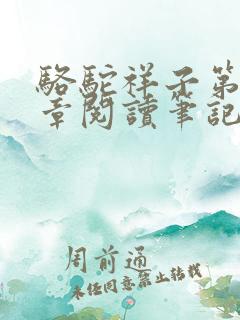 駱駝祥子第
章閱讀筆記
周前通
未经同意禁止转载